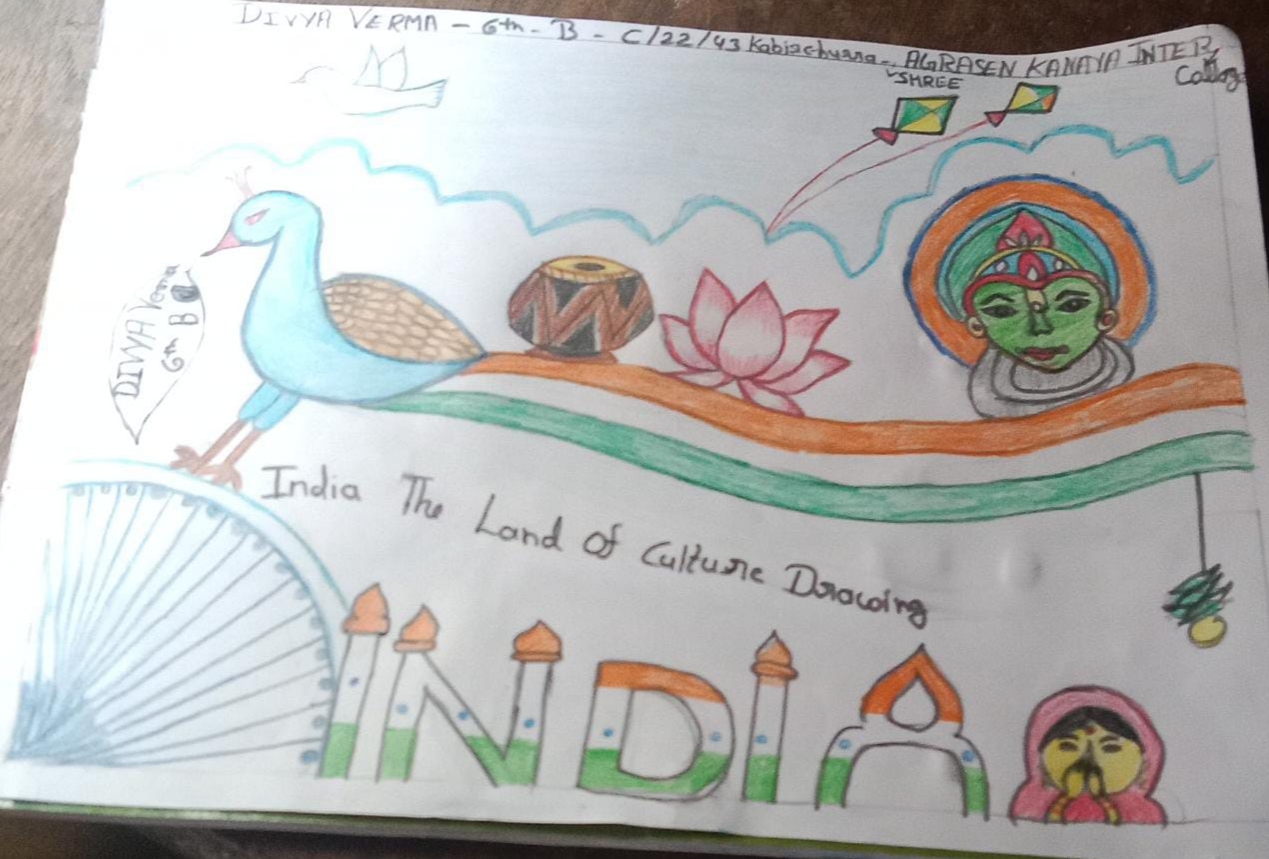 DIVYA VERMA - 6th - B - C/22/43 Kabirchurra - SHREE AGRASEN KANAYA INTER College
DIVYA Verma
6th B
India The Land Of Culture Drawing
INDIA